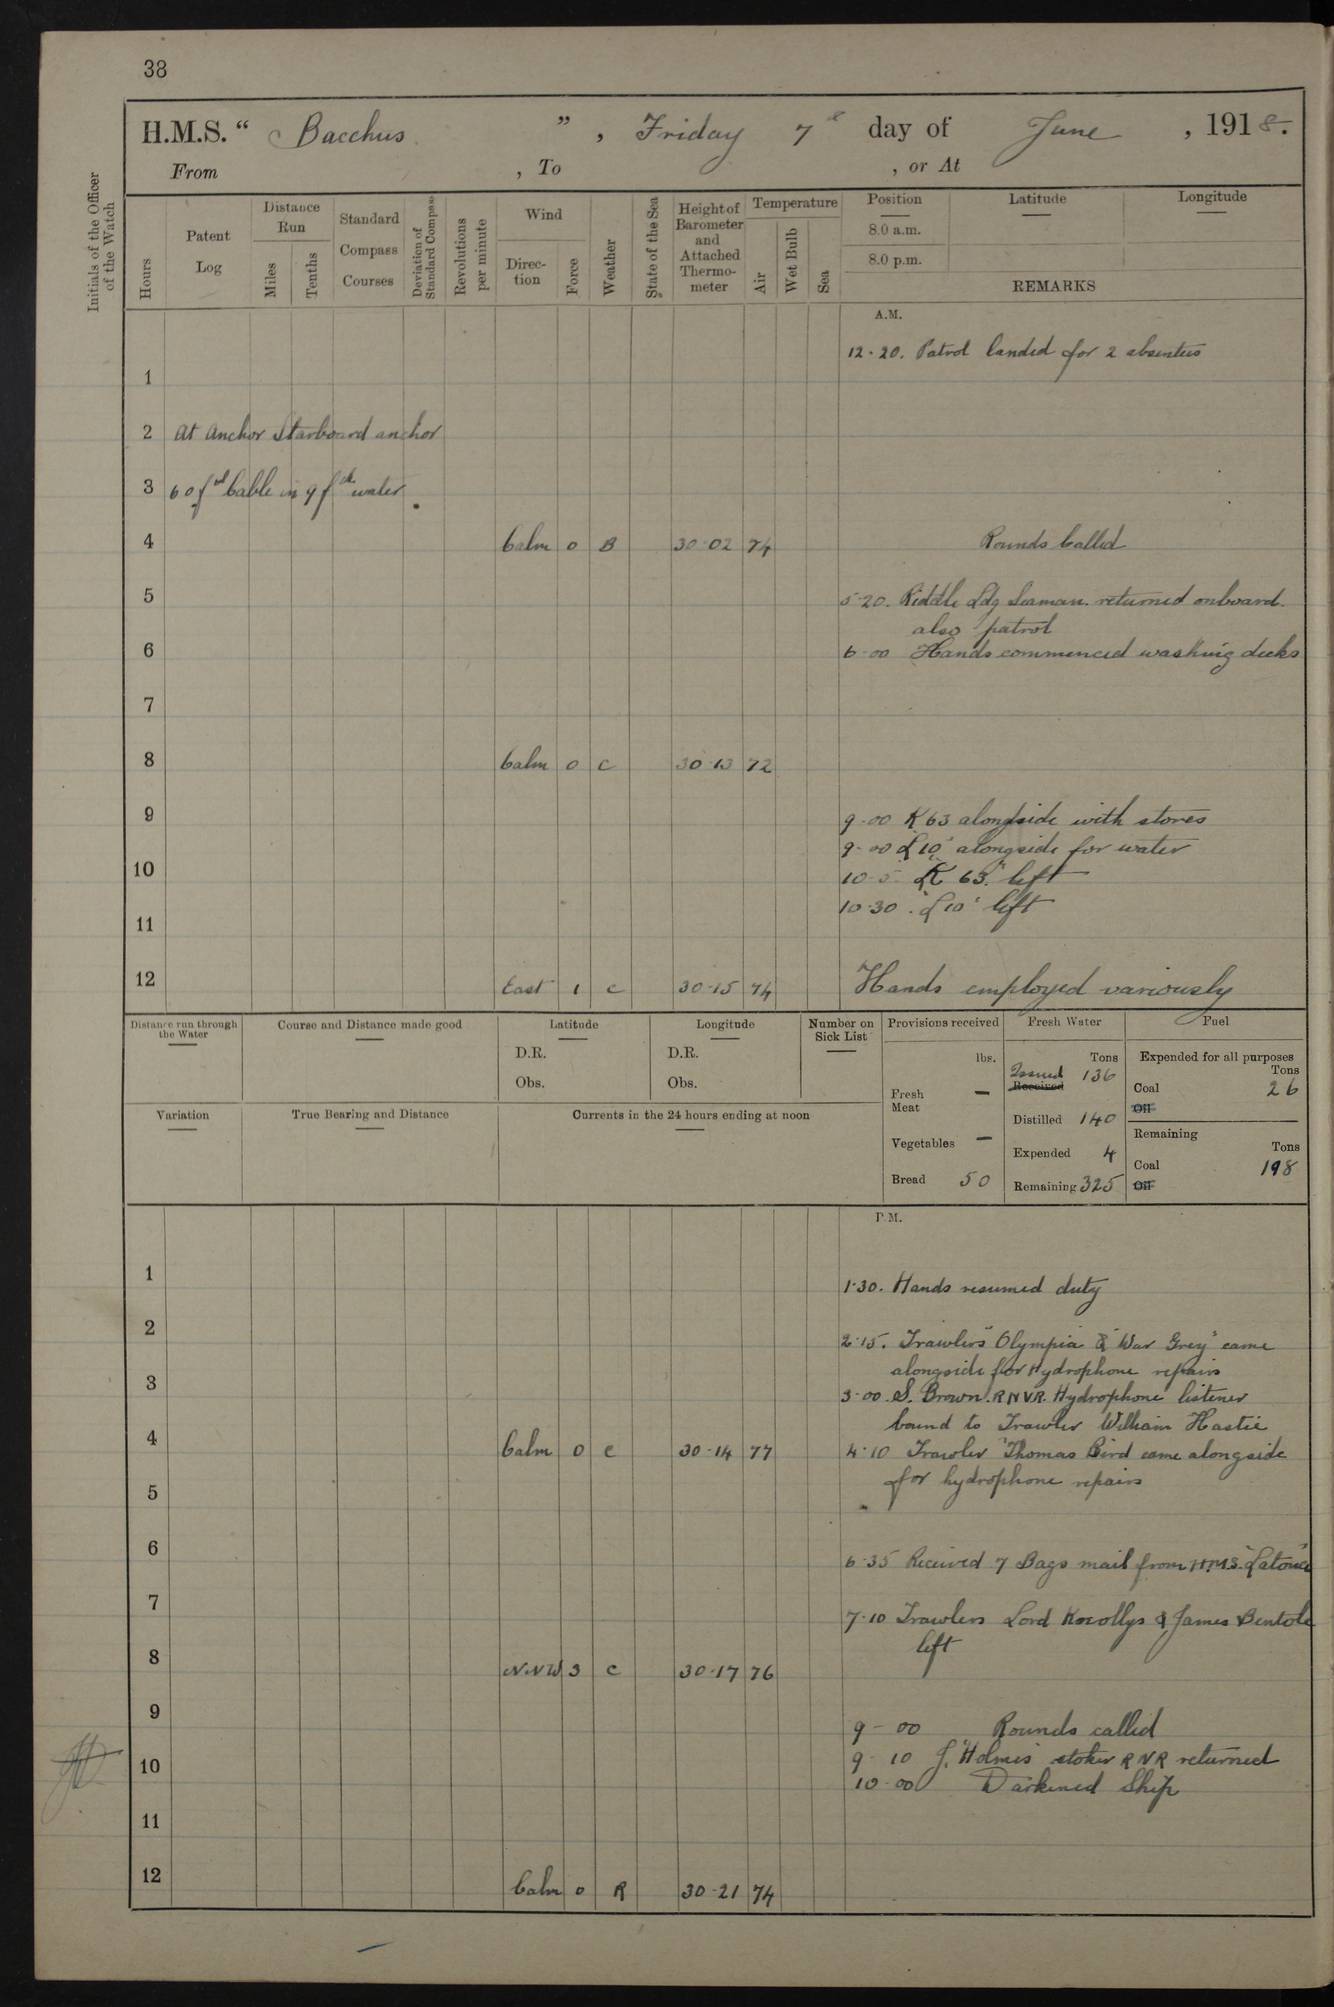 38
H.M.S. " Bacchus " , Friday 7th day of June , 1918.
From , To , or At
Initials of the Officer of the Watch
Hours
Patent Log
Distance Run
Miles
Tenths
Standard Compass Courses
Deviation of Standard Compass
Revolutions per minute
Wind
Direction
Force
Weather
State of the Sea
Height of Barometer and Attached Thermometer
Temperature
Air
Wet Bulb
Sea
Position
Latitude
Longitude
8.0 a.m.
8.0 p.m.
REMARKS
A.M.
12.20. Patrol landed for 2 absentees
1
2 At Anchor Starboard anchor
3 60 fms Cable in 9 fth water.
4 Calm 0 B 30.02 74 Rounds Called
5 5.20. Riddle Ldg Seaman. returned onboard.
also patrol
6 6.00 Hands commenced washing decks
7
8 Calm 0 C 30.13 72
9 9.00 K 63 alongside with stores
9.00 "L10" alongside for water
10 10.5 "K 63." left
10.30. "L10" left
11
12 East 1 C 30.15 74 Hands employed variously
Distance run through the Water
Course and Distance made good
Latitude
D.R.
Obs.
Longitude
D.R.
Obs.
Number on Sick List
Provisions received
lbs.
Fresh Meat —
Vegetables —
Bread 50
Fresh Water
Tons
Issued 136
Received
Distilled 140
Expended 4
Remaining 325
Fuel
Expended for all purposes
Tons
Coal 26
Oil
Remaining
Tons
Coal 198
Oil
Variation
True Bearing and Distance
Currents in the 24 hours ending at noon
P.M.
1 1.30. Hands resumed duty
2 2.15. Trawlers "Olympia & "War Grey" came
alongside for Hydrophone repairs
3 3.00. S. Brown. R N V R. Hydrophone listener
bound to Trawler William Hastie
4 Calm 0 C 30.14 77 4.10 Trawler "Thomas Bird came alongside
for hydrophone repairs
5
6 6.35 Received 7 Bags mail from H.M.S. "Latona"
7 7.10 Trawlers Lord Knollys & James Bentole
left
8 NNW 3 C 30.17 76
9 9-00 Rounds called
9-10 J. Holmes stoker R N R returned
10 10-00 Darkened Ship
11
12 Calm 0 R 30.21 74